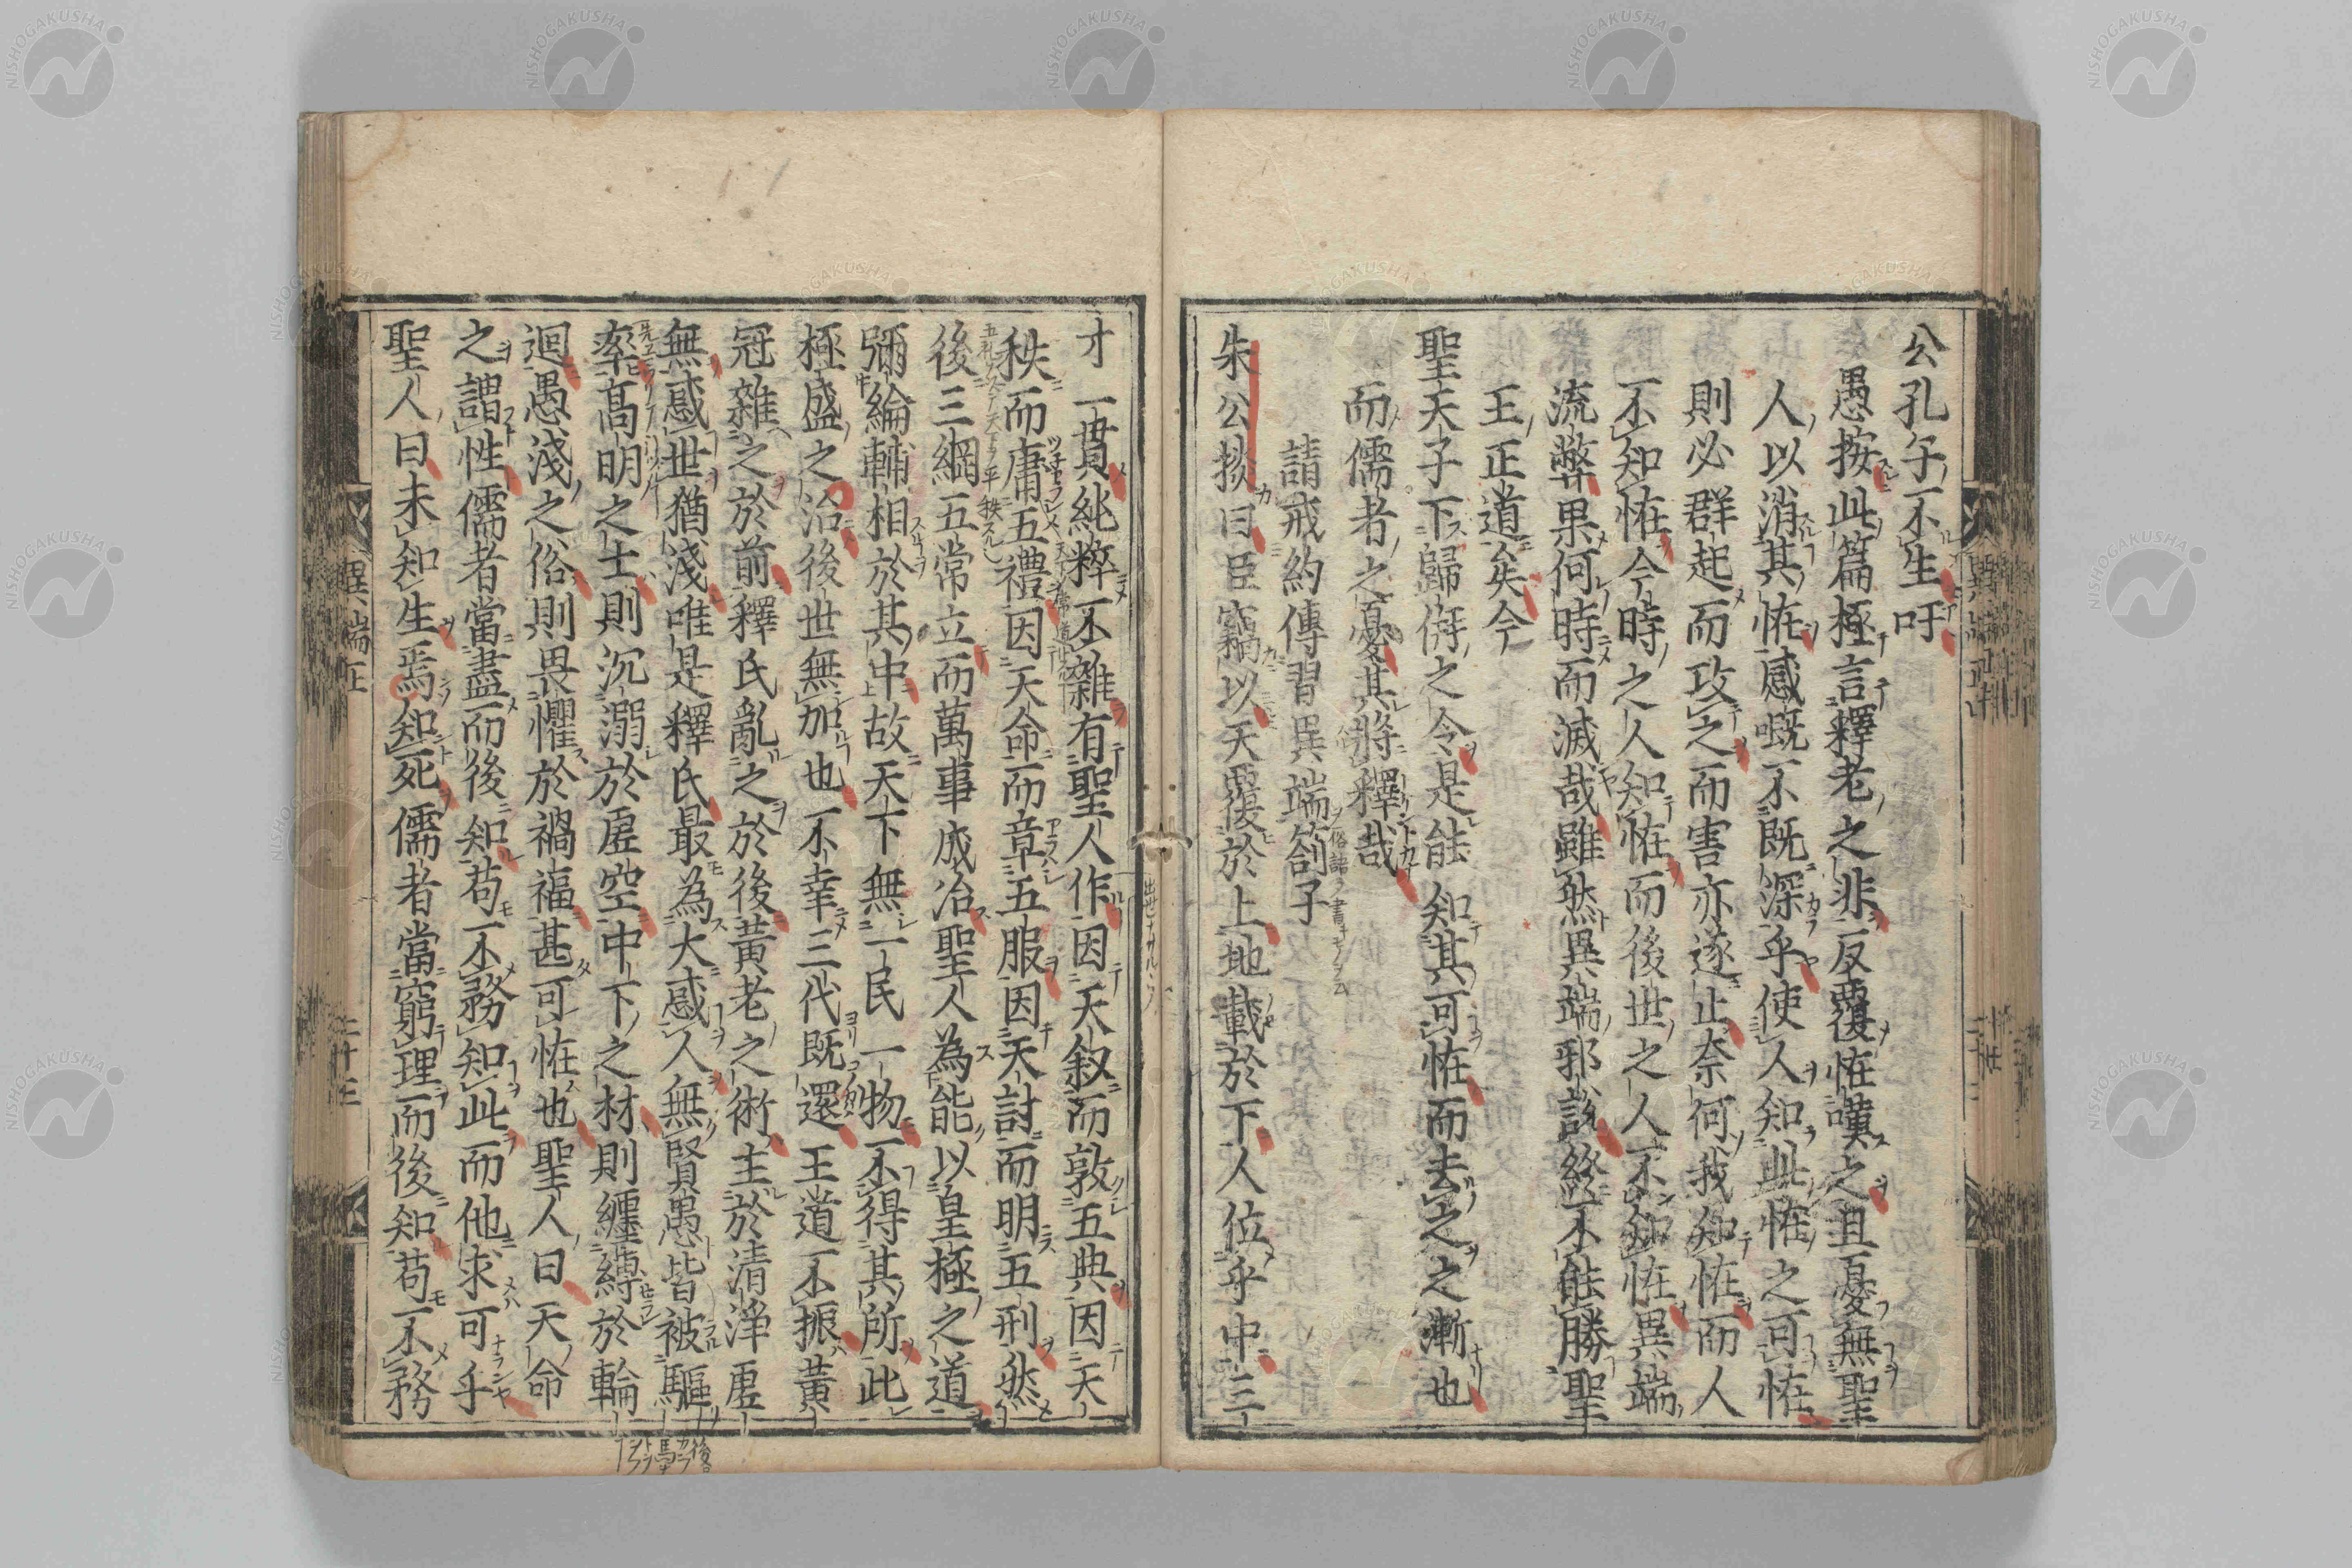 公孔子不生吁
愚按此篇極言釋老之非反覆恠嘆之且憂無聖
人以消其恠感嘅不既深乎使人知此恠之可恠
則必群起而攻之而害亦遂止奈何我知恠而人
不知恠今時之人知恠而後世之人不知恠異端
流弊果何時而滅哉雖然異端邪說終不能勝聖
王正道矣今
聖天子下歸併之令是能知其可恠而去之之漸也
而儒者之憂其將釋哉
請戒約傳習異端劄子
朱公掞曰臣竊以天覆於上地載於下人位乎中三
才一貫純粹不雜有聖人作因天叙而敦五典因天
秩而庸五禮因天命而章五服因天討而明五刑然
後三綱五常立而萬事成冶聖人為能以皇極之道
彌綸輔相於其中故天下無一民一物不得其所此
極盛之治後世無加也不幸三代既還王道不振黃
冠雜之於前釋氏亂之於後黃老之術主於清淨虛
無惑世猶淺唯是釋氏最為大惑人無賢愚皆被驅
率高明之士則沉溺於虛空中下之材則纏縛於輪
迴愚淺之俗則畏懼於禍福甚可恠也聖人曰天命
之謂性儒者當盡而後知苟不務知此而他求可乎
聖人曰未知生焉知死儒者當窮理而後知苟不務
異端正
二十三
NISHOGAKUSHA